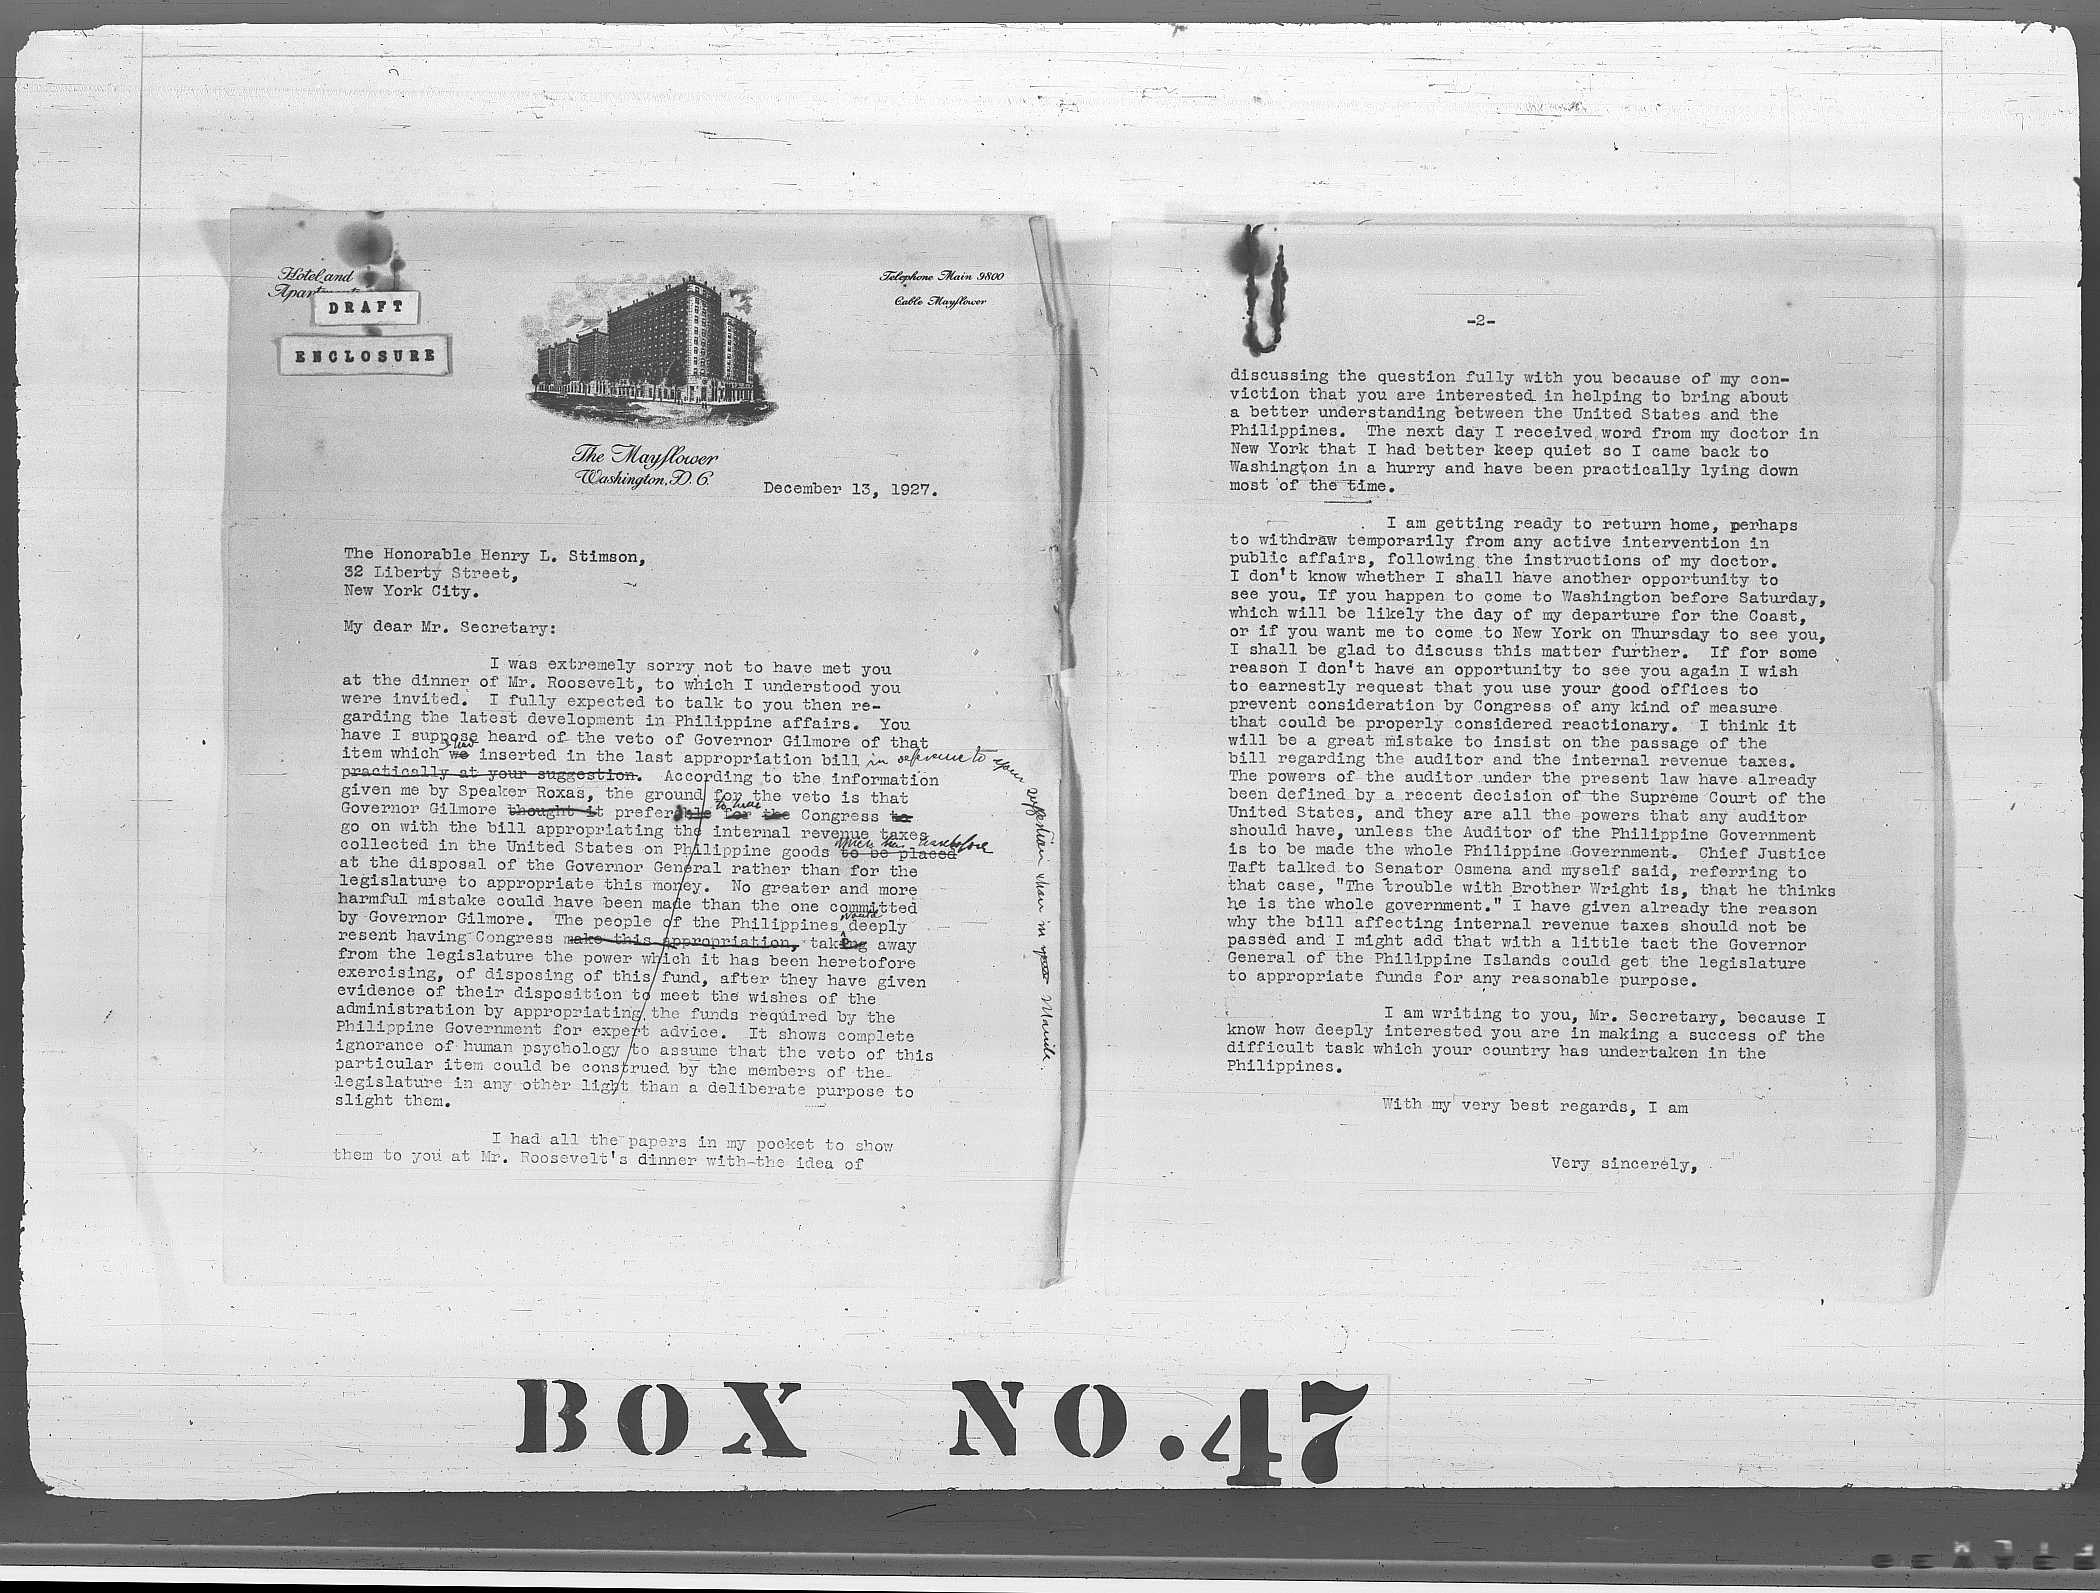 Hotel and
DRAFT
ENCLOSURE
Telephone Main 9800
Cable Mayflower
The Mayflower
Washington, D.C.
December 13, 1927.
The Honorable Henry L. Stimson,
32 Liberty Street,
New York City.
My dear Mr. Secretary:
I was extremely sorry not to have met you
at the dinner of Mr. Roosevelt, to which I understood you
were invited. I fully expected to talk to you then re-
garding the latest development in Philippine affairs. You
have I suppose heard of the veto of Governor Gilmore of that
item which we I had inserted in the last appropriation bill in deference to your suggestion when in your Manila.
practically at your suggestion. According to the information
given me by Speaker Roxas, the ground for the veto is that
Governor Gilmore thought it preferable for the to have Congress to
go on with the bill appropriating the internal revenue taxes
collected in the United States on Philippine goods to be placed
at the disposal of the Governor General rather than for the
legislature to appropriate this money. No greater and more
harmful mistake could have been made than the one committed
by Governor Gilmore. The people of the Philippines would deeply
resent having Congress make this appropriation, taking away
from the legislature the power which it has been heretofore
exercising, of disposing of this fund, after they have given
evidence of their disposition to meet the wishes of the
administration by appropriating the funds required by the
Philippine Government for expert advice. It shows complete
ignorance of human psychology to assume that the veto of this
particular item could be construed by the members of the
legislature in any other light than a deliberate purpose to
slight them.
I had all the papers in my pocket to show
them to you at Mr. Roosevelt's dinner with the idea of
-2-
discussing the question fully with you because of my con-
viction that you are interested in helping to bring about
a better understanding between the United States and the
Philippines. The next day I received word from my doctor in
New York that I had better keep quiet so I came back to
Washington in a hurry and have been practically lying down
most of the time.
I am getting ready to return home, perhaps
to withdraw temporarily from any active intervention in
public affairs, following the instructions of my doctor.
I don't know whether I shall have another opportunity to
see you. If you happen to come to Washington before Saturday,
which will be likely the day of my departure for the Coast,
or if you want me to come to New York on Thursday to see you,
I shall be glad to discuss this matter further. If for some
reason I don't have an opportunity to see you again I wish
to earnestly request that you use your good offices to
prevent consideration by Congress of any kind of measure
that could be properly considered reactionary. I think it
will be a great mistake to insist on the passage of the
bill regarding the auditor and the internal revenue taxes.
The powers of the auditor under the present law have already
been defined by a recent decision of the Supreme Court of the
United States, and they are all the powers that any auditor
should have, unless the Auditor of the Philippine Government
is to be made the whole Philippine Government. Chief Justice
Taft talked to Senator Osmena and myself said, referring to
that case, "The trouble with Brother Wright is, that he thinks
he is the whole government." I have given already the reason
why the bill affecting internal revenue taxes should not be
passed and I might add that with a little tact the Governor
General of the Philippine Islands could get the legislature
to appropriate funds for any reasonable purpose.
I am writing to you, Mr. Secretary, because I
know how deeply interested you are in making a success of the
difficult task which your country has undertaken in the
Philippines.
With my very best regards, I am
Very sincerely,
BOX NO. 47